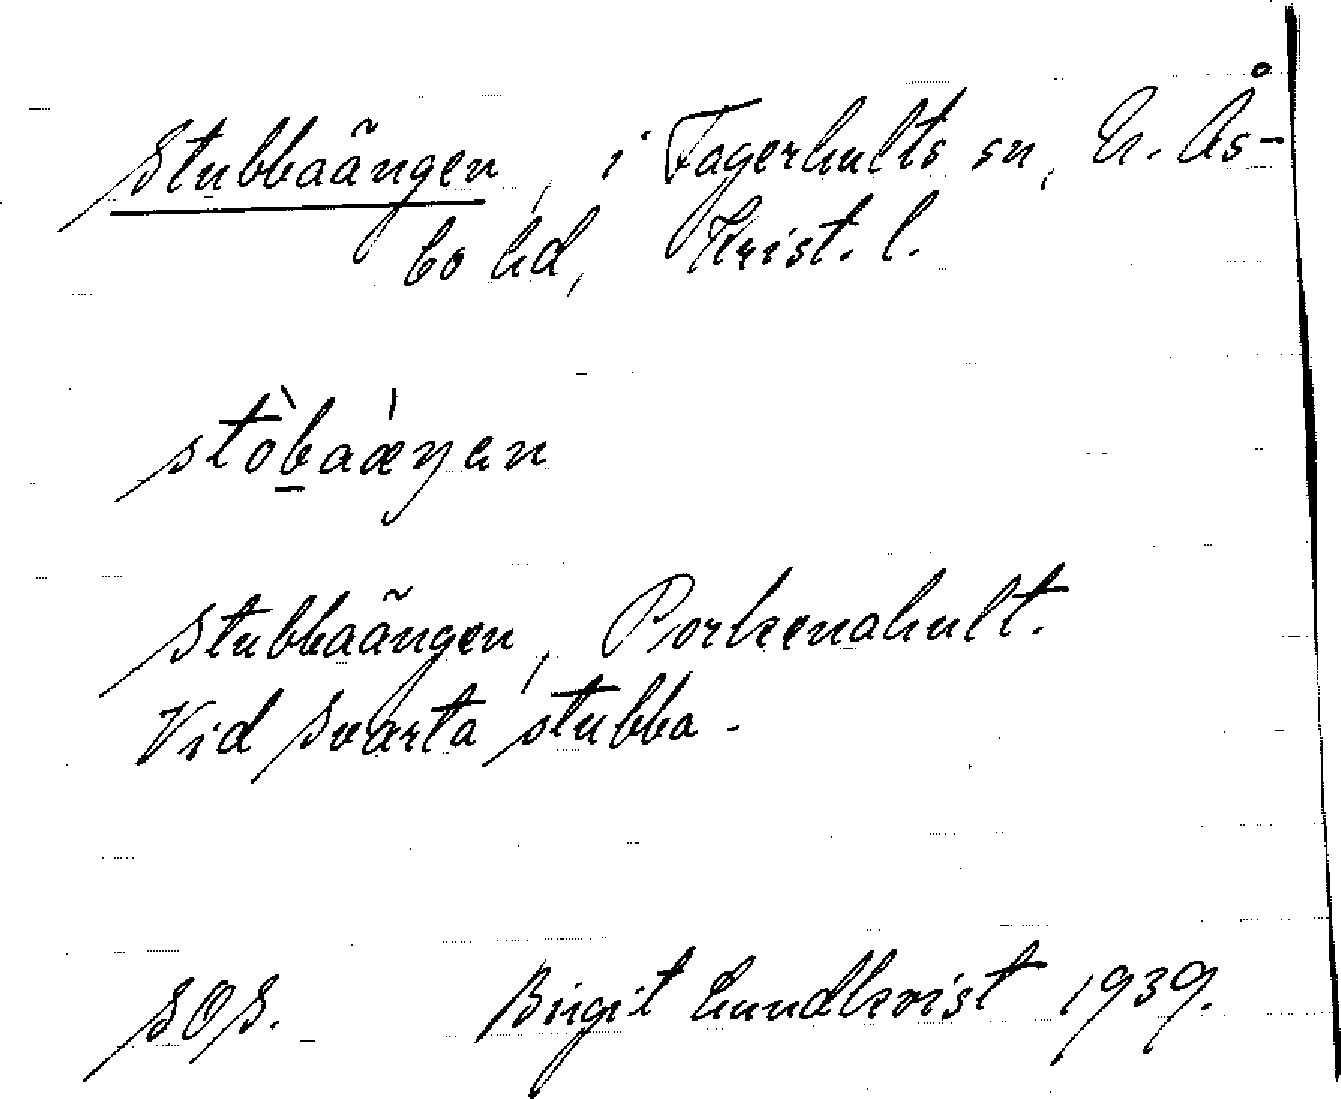 Stubbaängen, i Fagerhults sn, N. Ås-
bo hd, Krist. l.
stòbaæŋen
Stubbaängen, Porkenahult.
Vid Svarta stubba.
SOS. Birgit Lundkvist 1939.